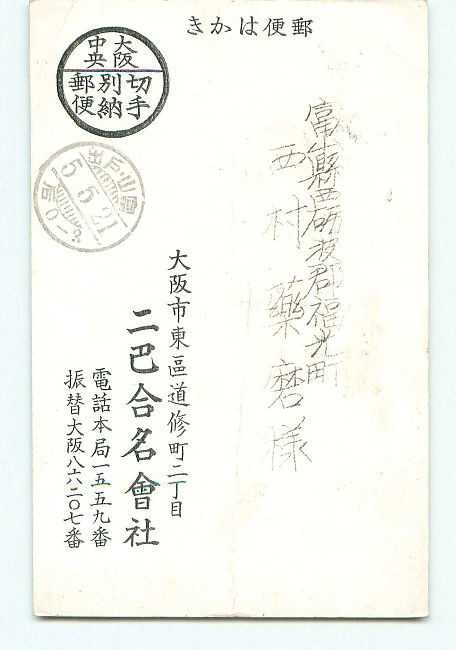 郵便はかき
大阪
中央
切手
別納
郵便
富山縣西砺波郡福光町
西村藥磨様
大阪市東區道修町二丁目
二巴合名會社
電話本局一五五九番
振替大阪八六二〇七番
富山・戸出
5.5.21
后0-3